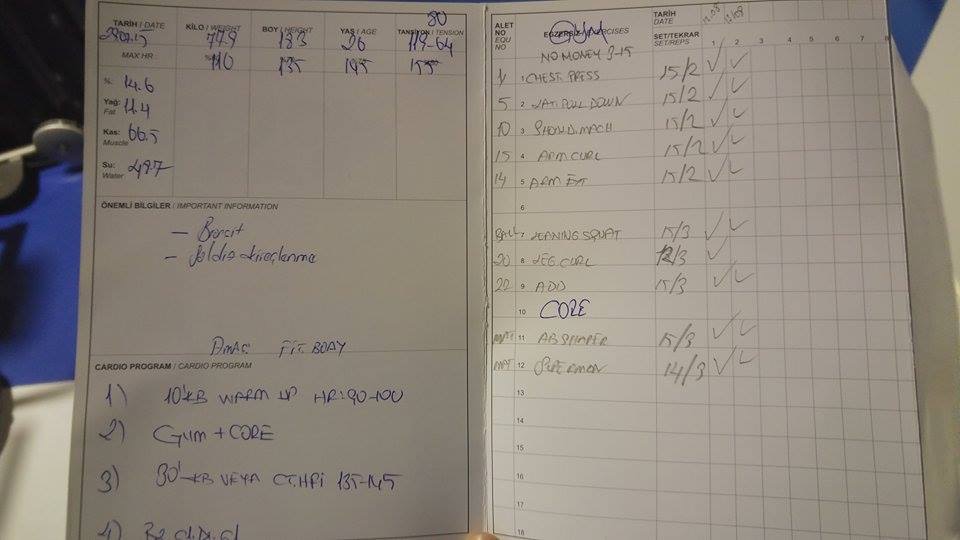 TARİH / DATE KİLO / WEIGHT BOY / HEIGHT YAŞ / AGE TANSİYON / TENSION
80
77.9 183 26 119-64
MAX HR: %110 135 145 155
%: 14.6
Yağ: 11.4
Fat
Kas: 66.5
Muscle
Su: 49.7
Water
ÖNEMLİ BİLGİLER / IMPORTANT INFORMATION
— Bronşit
AMAÇ FİT BODY
CARDIO PROGRAM / CARDIO PROGRAM
1) 10' KB WARM UP HR:90-100
2) GYM + CORE
3) 30' KB VEYA CT.HPİ 135-145
4)
ALET NO EGZERSİZ / EXERCISES TARİH
EQU NO DATE
GYM
SET/TEKRAR
SET/REPS 1 2 3 4 5 6 7 8
NO MONEY 3-15
1 CHEST PRESS 15/2
5 2 LAT PULL DOWN 15/2
10 3 SHOULD. MACH 15/2
15 4 ARM CURL 15/2
14 5 ARM EXT 15/2
6
BALL 7 LEANING SQUAT 15/3
20 8 LEG CURL 12/3
22 9 ADD 15/3
10 CORE
MAT 11 AB SHAPER 15/3
MAT 12 SUPERMAN 14/3
13
14
15
16
17
18